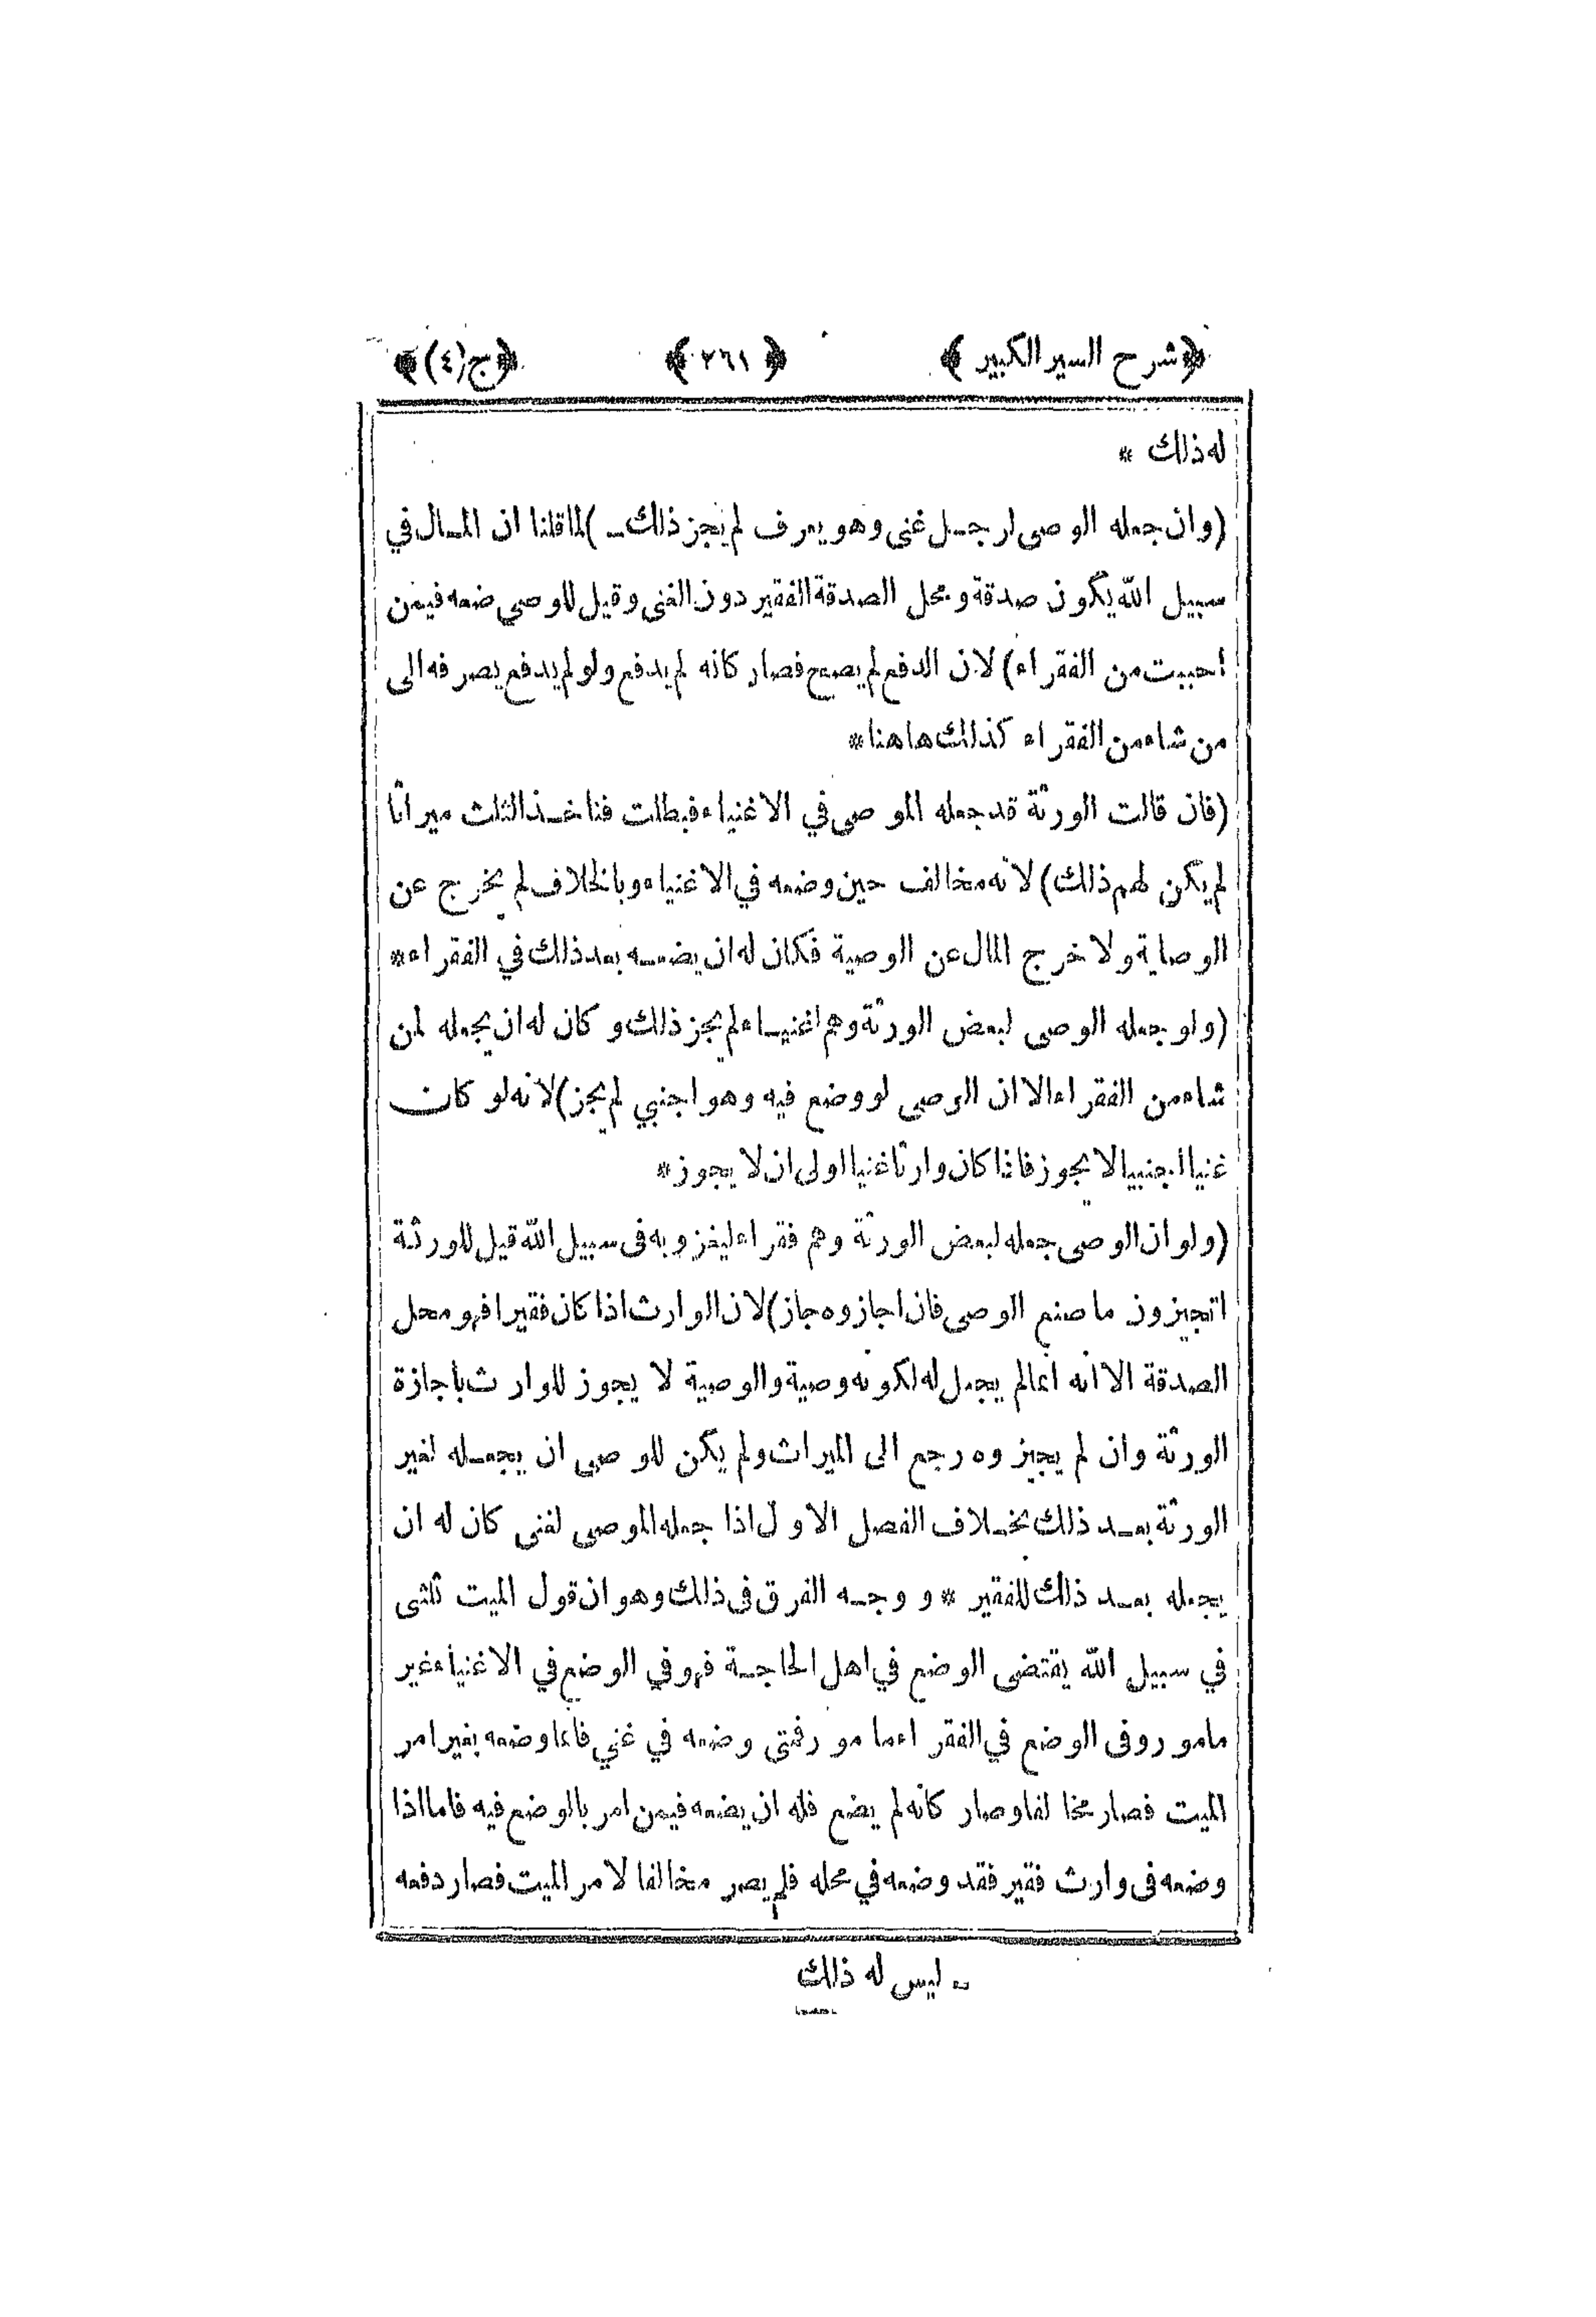 ﴿شرح السير الكبير﴾ ﴿٢٦١﴾ ﴿ج(٤)﴾
له ذلك *
(وان جعله الوصى لرجل غنى وهو يعرف لم يجز ذلك) لما قلنا ان المال في
سبيل الله يكون صدقة ومحل الصدقة الفقير دون الغنى وقيل للوصي ضعه فيمن
احببت من الفقراء) لان الدفع لم يصح فصار كانه لم يدفع ولو لم يدفع يصرفه الى
من شاء من الفقراء كذلك هاهنا *
(فان قالت الورثة قد جعله الموصى في الاغنياء فبطلت فنأخذ الثلث ميراثا
لم يكن لهم ذلك) لانه مخالف حين وضعه في الاغنياء وبالخلاف لم يخرج عن
الوصاية ولا خرج المال عن الوصية فكان له ان يضعه بعد ذلك في الفقراء *
(ولو جعله الوصى لبعض الورثة وهم اغنياء لم يجز ذلك وكان له ان يجعله لمن
شاء من الفقراء الا ان الوصى لو وضع فيه وهو اجنبي لم يجز) لانه لو كان
غنيا اجنبيا لا يجوز فاذا كان وارثا غنيا اولى ان لا يجوز *
(ولو ان الوصى جعله لبعض الورثة وهم فقراء ليغزو به فى سبيل الله قيل للورثة
اتجيزون ما صنع الوصى فان اجازوه جاز) لان الوارث اذا كان فقيرا فهو محل
الصدقة الا انه انما لم يجعل له لكونه وصية والوصية لا يجوز للوارث باجازة
الورثة وان لم يجيزوه رجع الى الميراث ولم يكن للوصى ان يجعله لغير
الورثة بعد ذلك بخلاف الفصل الاول اذا جعله الموصى لغنى كان له ان
يجعله بعد ذلك للفقير * ووجه الفرق فى ذلك وهو ان قول الميت ثلثى
في سبيل الله يقتضى الوضع في اهل الحاجة فهو في الوضع في الاغنياء غير
مامور وفى الوضع في الفقراء مامور فمتى وضعه في غني فانما وضعه بغير امر
الميت فصار مخالفا وصار كأنه لم يضع فله ان يضعه فيمن امر بالوضع فيه فاما اذا
وضعه فى وارث فقير فقد وضعه في محله فلم يصر مخالفا لامر الميت فصار دفعه
ليس له ذلك